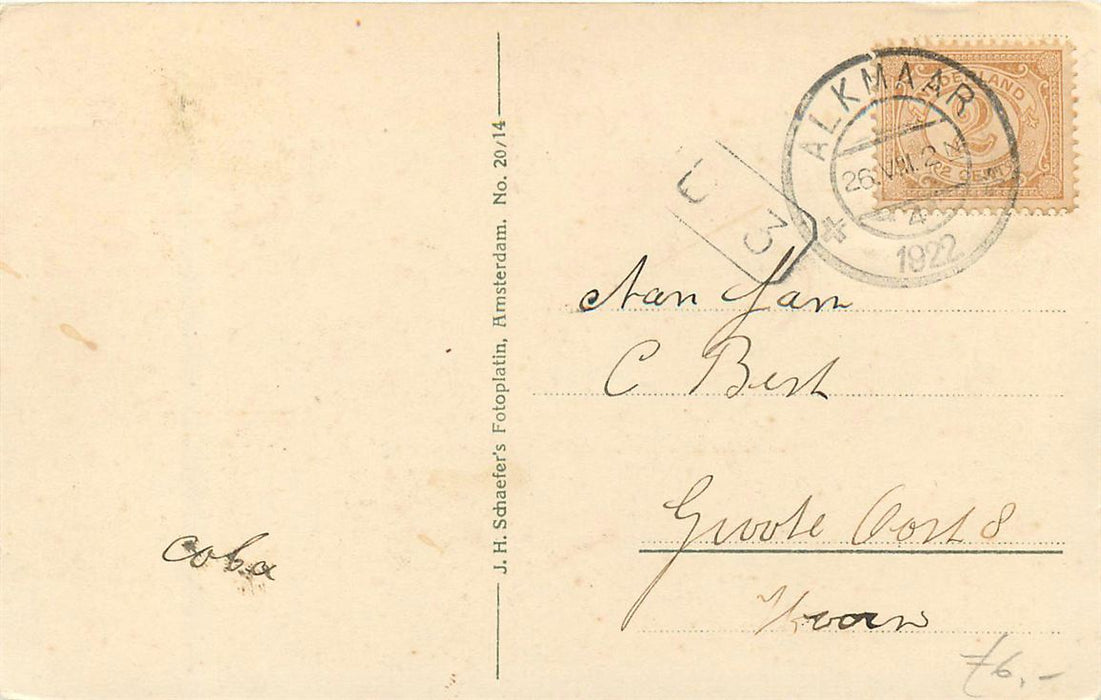 ALKMAAR
26.VIII.2 N
4
1922
2
2 CENT
3
Aan Fam
C Best
Groote Oost 8
Hoorn
coba
J. H. Schaefer's Fotoplatin, Amsterdam. No. 20/14
f6,-